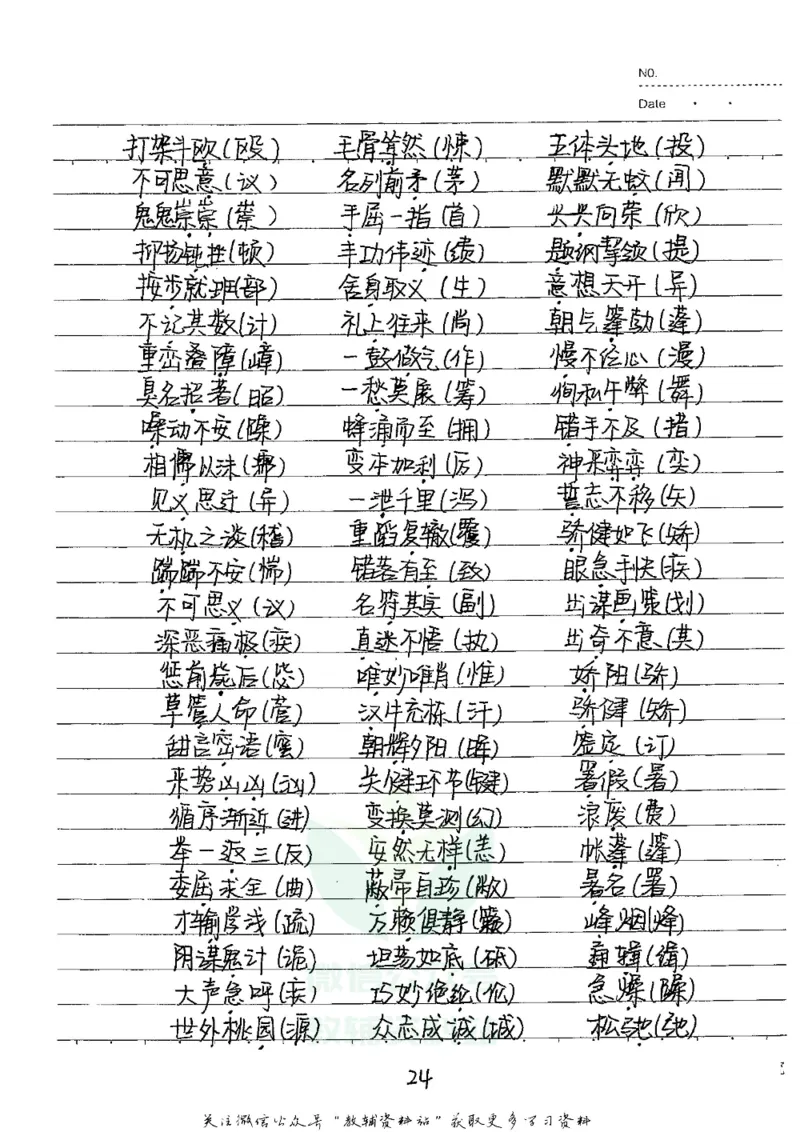 NO.
Date
打架斗欧(殴) 毛骨竦然(悚) 五体头地(投)
不可思意(议) 名列前矛(茅) 默默无蚊(闻)
鬼鬼崇崇(祟) 手屈一指(首) 兴兴向荣(欣)
抑扬钝挫(顿) 丰功伟迹(绩) 题纲挈领(提)
按步就班(部) 舍身取义(生) 意想天开(异)
不记其数(计) 礼上往来(尚) 朝气篷勃(蓬)
重峦叠障(嶂) 一鼓做气(作) 慢不经心(漫)
臭名招著(昭) 一愁莫展(筹) 徇私午弊(舞)
噪动不安(躁) 蜂涌而至(拥) 错手不及(措)
相儒以沫(濡) 变本加利(厉) 神采弈弈(奕)
见义思迁(异) 一泄千里(泻) 誓志不移(矢)
无机之谈(稽) 重蹈复辙(覆) 骄健如飞(矫)
踹踹不安(惴) 错落有至(致) 眼急手快(疾)
不可思义(议) 名符其实(副) 出谋画策(划)
深恶痛极(疾) 直迷不悟(执) 出奇不意(其)
惩前毖后(毖) 唯妙唯肖(惟) 娇阳(骄)
草管人命(菅) 汉牛充栋(汗) 骄健(矫)
甜言密语(蜜) 朝辉夕阳(晖) 签定(订)
来势凶凶(汹) 关健环节(键) 暑假(暑)
循序渐近(进) 变换莫测(幻) 浪废(费)
举一返三(反) 安然无样(恙) 帐蓬(篷)
委屈求全(曲) 蔽帚自珍(敝) 暑名(署)
才输学浅(疏) 万赖俱静(籁) 峰烟(烽)
阴谋鬼计(诡) 坦荡如底(砥) 编辑(缉)
大声急呼(疾) 巧妙绝纶(伦) 急燥(躁)
世外桃园(源) 众志成诚(城) 松驰(弛)
24
关注微信公众号“教辅资料站”获取更多学习资料